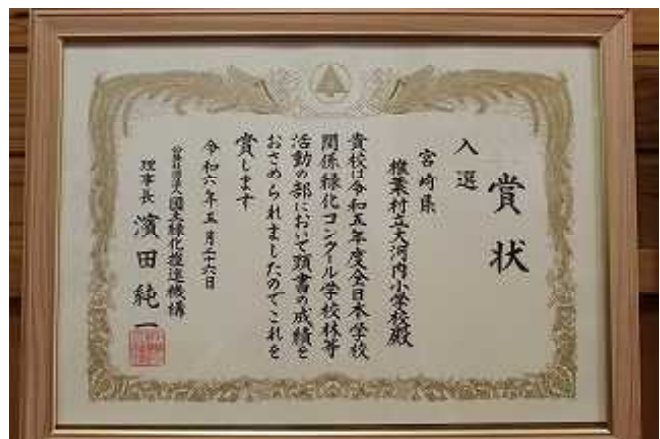 賞状
入選
宮崎県
椎葉村立大河内小学校殿
貴校は令和五年度全日本学校
関係緑化コンクール学校林等
活動の部において頭書の成績を
おさめられましたのでこれを
賞します
令和六年五月二十六日
公益社団法人国土緑化推進機構
理事長 濱田純一